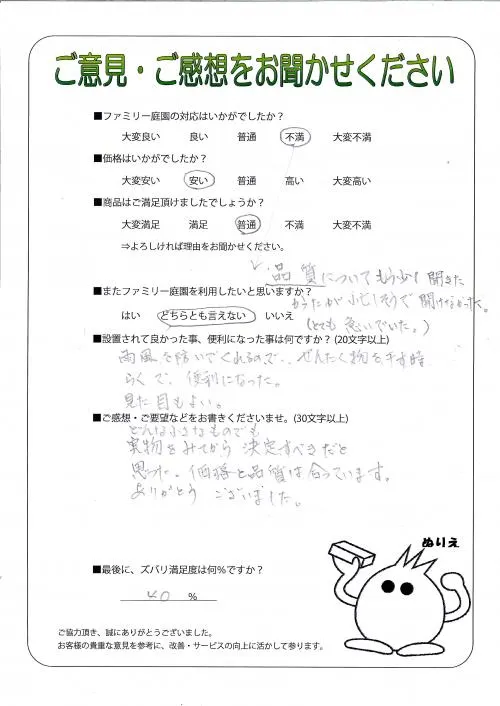 ご意見・ご感想をお聞かせください
■ファミリー庭園の対応はいかがでしたか?
大変良い 良い 普通 不満 大変不満
■価格はいかがでしたか?
大変安い 安い 普通 高い 大変高い
■商品はご満足頂けましたでしょうか?
大変満足 満足 普通 不満 大変不満
⇒よろしければ理由をお聞かせください。
品質についてもう少し聞きた
■またファミリー庭園を利用したいと思いますか?
かったが忙しそうで聞けなかった。
はい どちらとも言えない いいえ
(とても急いでいた。)
■設置されて良かった事、便利になった事は何ですか? (20文字以上)
雨風を防いでくれるので、ぜんたく物を干す時
らくで、便利になった。
見た目もよい。
■ご感想・ご要望などをお書きくださいませ。(30文字以上)
どんな小さなものでも
実物をみてから決定すべきだと
思った。価格と品質は合っています。
ありがとうございました。
ぬりえ
■最後に、ズバリ満足度は何%ですか?
40 %
ご協力頂き、誠にありがとうございました。
お客様の貴重な意見を参考に、改善・サービスの向上に活かして参ります。